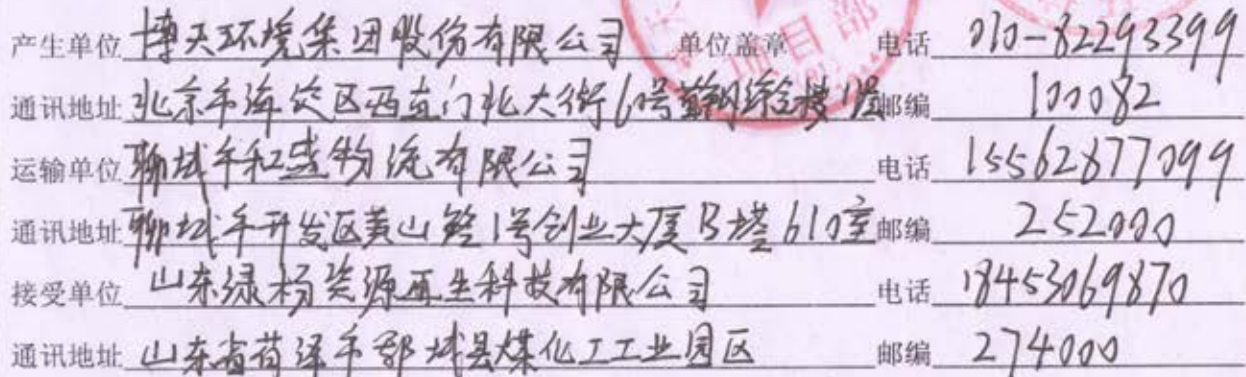 产生单位 博天环境集团股份有限公司 单位盖章 电话 010-82293399
通讯地址 北京市海淀区西直门北大街60号首钢综合楼 邮编 100082
运输单位 聊城市和盛物流有限公司 电话 15562877099
通讯地址 聊城市开发区黄山路1号创业大厦B塔610室 邮编 252000
接受单位 山东绿杨资源再生科技有限公司 电话 18453069870
通讯地址 山东省菏泽市鄄城县煤化工工业园区 邮编 274000
项目部